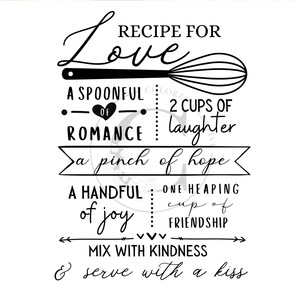 RECIPE FOR
Love
A SPOONFUL
OF
ROMANCE
2 CUPS OF
laughter
a pinch of hope
A HANDFUL
of joy
ONE HEAPING
cup of
FRIENDSHIP
MIX WITH KINDNESS
& serve with a kiss